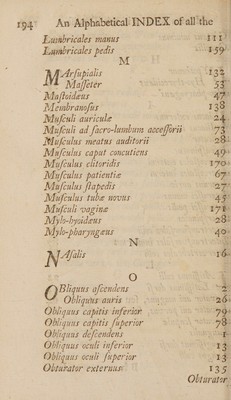 194 An Alphabetical INDEX of all the
Lumbricales manus 111
Lumbricales pedis 159
M
MArsupialis 132
Masseter 53
Mastoidæus 47
Membranosus 138
Musculi auriculæ 24
Musculi ad sacro-lumbum accessorii 73
Musculus meatus auditorii 28
Musculus caput concutiens 49
Musculus clitoridis 170
Musculus patientiæ 67
Musculus stapedis 27
Musculus tubæ novus 45
Musculi vaginæ 171
Mylo-hyoidæus 28
Mylo-pharyngæus 40
N
NAsalis 16
O
OBliquus ascendens 2
Obliquus auris 26
Obliquus capitis inferior 79
Obliquus capitis superior 78
Obliquus descendens 1
Obliquus oculi inferior 13
Obliquus oculi superior 13
Obturator externus 135
Obturator